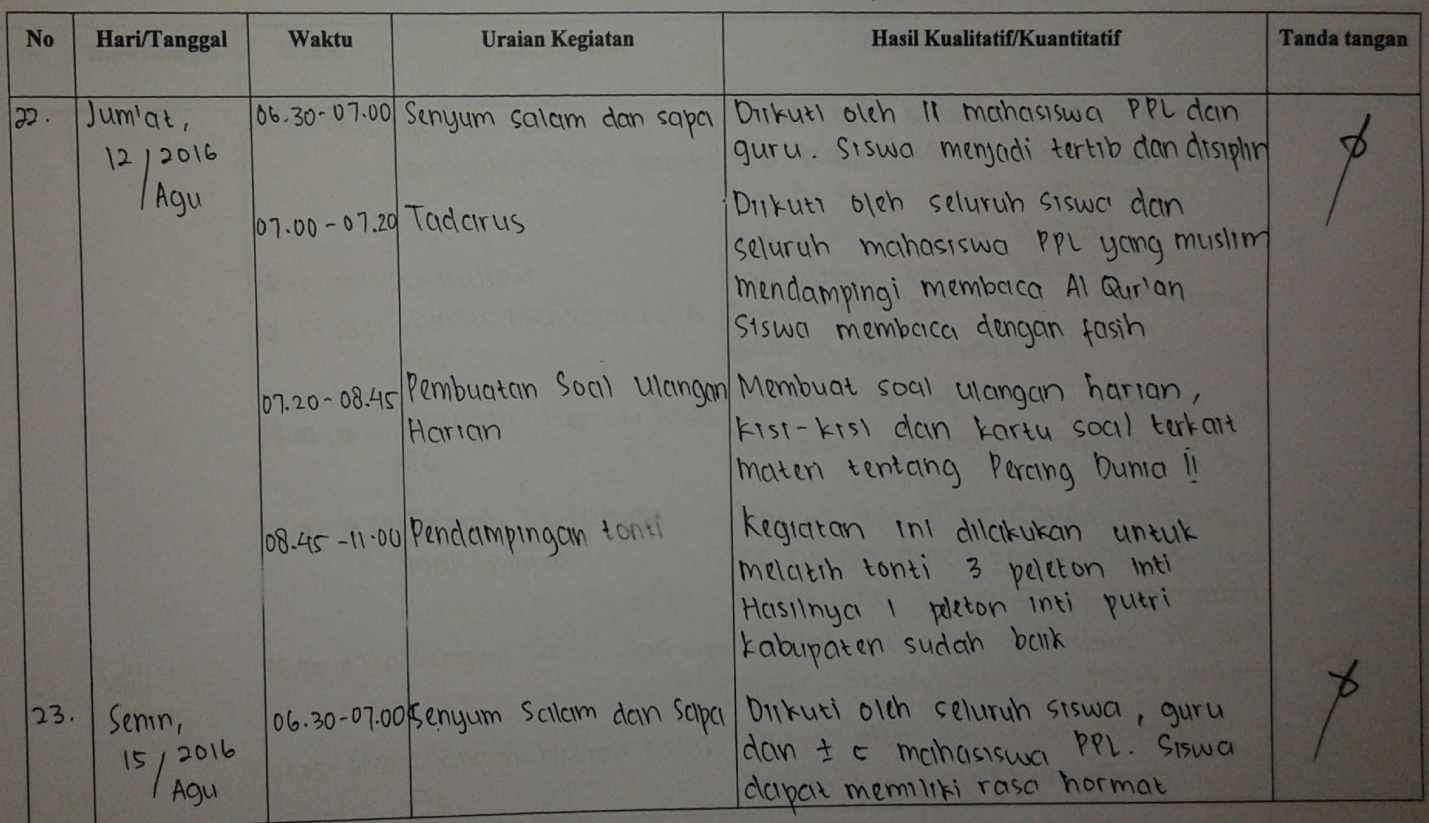 No Hari/Tanggal Waktu Uraian Kegiatan Hasil Kualitatif/Kuantitatif Tanda tangan
22. Jum'at, 06.30-07.00 Senyum salam dan sapa Diikuti oleh 11 mahasiswa PPL dan
12/2016 guru. Siswa menjadi tertib dan disiplin
Agu
07.00-07.20 Tadarus Diikuti oleh seluruh siswa dan
seluruh mahasiswa PPL yang muslim
mendampingi membaca Al Qur'an
Siswa membaca dengan fasih
07.20-08.45 Pembuatan Soal Ulangan Membuat soal ulangan harian,
Harian kisi-kisi dan kartu soal terkait
materi tentang Perang Dunia II
08.45-11.00 Pendampingan tonti Kegiatan ini dilakukan untuk
melatih tonti 3 peleton inti
Hasilnya 1 peleton inti putri
kabupaten sudah baik
23. Senin, 06.30-07.00 Senyum Salam dan Sapa Diikuti oleh seluruh siswa, guru
15/2016 dan ± mahasiswa PPL. Siswa
Agu dapat memiliki rasa hormat